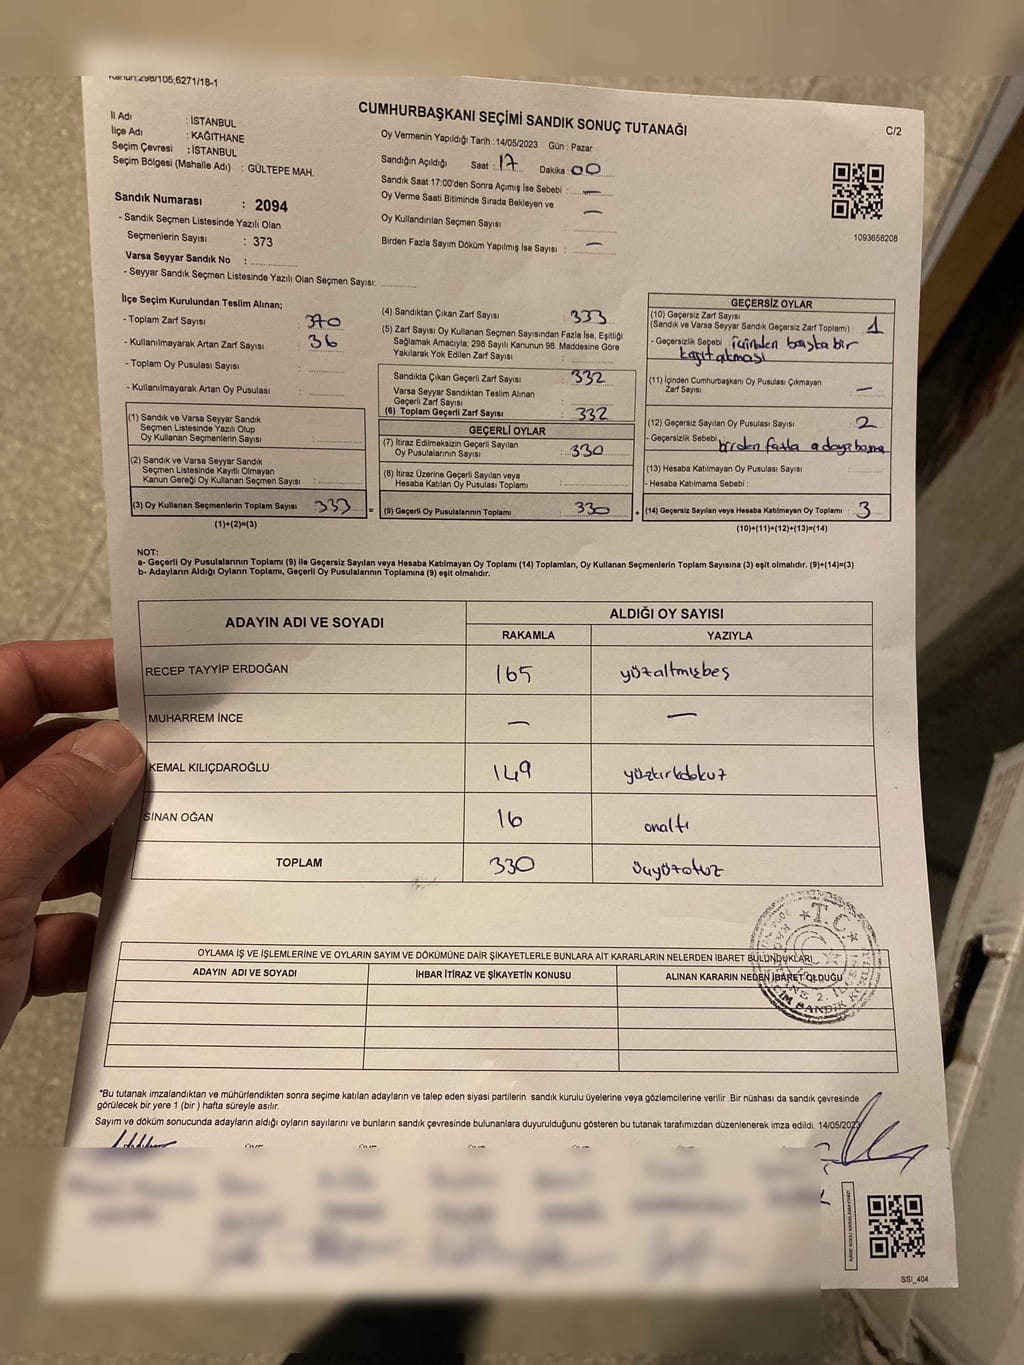 Kanun:298/105,6271/18-1
CUMHURBAŞKANI SEÇİMİ SANDIK SONUÇ TUTANAĞI
C/2
İl Adı : İSTANBUL
İlçe Adı : KAĞITHANE
Seçim Çevresi : İSTANBUL
Seçim Bölgesi (Mahalle Adı) : GÜLTEPE MAH.
Oy Vermenin Yapıldığı Tarih : 14/05/2023 Gün : Pazar
Sandığın Açıldığı Saat : 17 Dakika : 00
Sandık Saat 17:00'den Sonra Açımış İse Sebebi : —
Oy Verme Saati Bitiminde Sırada Bekleyen ve —
Oy Kullandırılan Seçmen Sayısı :
Birden Fazla Sayım Döküm Yapılmış İse Sayısı : —
1093658208
Sandık Numarası : 2094
- Sandık Seçmen Listesinde Yazılı Olan
Seçmenlerin Sayısı : 373
Varsa Seyyar Sandık No :
- Seyyar Sandık Seçmen Listesinde Yazılı Olan Seçmen Sayısı:
İlçe Seçim Kurulundan Teslim Alınan;
- Toplam Zarf Sayısı : 370
- Kullanılmayarak Artan Zarf Sayısı : 36
- Toplam Oy Pusulası Sayısı :
- Kullanılmayarak Artan Oy Pusulası :
(1) Sandık ve Varsa Seyyar Sandık
Seçmen Listesinde Yazılı Olup
Oy Kullanan Seçmenlerin Sayısı :
(2) Sandık ve Varsa Seyyar Sandık
Seçmen Listesinde Kayıtlı Olmayan
Kanun Gereği Oy Kullanan Seçmen Sayısı :
(3) Oy Kullanan Seçmenlerin Toplam Sayısı : 333
(1)+(2)=(3)
=
(4) Sandıktan Çıkan Zarf Sayısı : 333
(5) Zarf Sayısı Oy Kullanan Seçmen Sayısından Fazla İse, Eşitliği
Sağlamak Amacıyla; 298 Sayılı Kanunun 98. Maddesine Göre
Yakılarak Yok Edilen Zarf Sayısı :
Sandıkta Çıkan Geçerli Zarf Sayısı : 332
Varsa Seyyar Sandıktan Teslim Alınan
Geçerli Zarf Sayısı :
(6) Toplam Geçerli Zarf Sayısı : 332
GEÇERLİ OYLAR
(7) İtiraz Edilmeksizin Geçerli Sayılan
Oy Pusulalarının Sayısı : 330
(8) İtiraz Üzerine Geçerli Sayılan veya
Hesaba Katılan Oy Pusulası Toplamı :
(9) Geçerli Oy Pusulalarının Toplamı : 330
+
GEÇERSİZ OYLAR
(10) Geçersiz Zarf Sayısı
(Sandık ve Varsa Seyyar Sandık Geçersiz Zarf Toplamı) : 1
- Geçersizlik Sebebi : içinden başka bir
kağıt çıkması
(11) İçinden Cumhurbaşkanı Oy Pusulası Çıkmayan
Zarf Sayısı : —
(12) Geçersiz Sayılan Oy Pusulası Sayısı : 2
- Geçersizlik Sebebi birden fazla adaya basma
(13) Hesaba Katılmayan Oy Pusulası Sayısı :
- Hesaba Katılmama Sebebi :
(14) Geçersiz Sayılan veya Hesaba Katılmayan Oy Toplamı : 3
(10)+(11)+(12)+(13)=(14)
NOT:
a- Geçerli Oy Pusulalarının Toplamı (9) ile Geçersiz Sayılan veya Hesaba Katılmayan Oy Toplamı (14) Toplamları, Oy Kullanan Seçmenlerin Toplam Sayısına (3) eşit olmalıdır. (9)+(14)=(3)
b- Adayların Aldığı Oyların Toplamı, Geçerli Oy Pusulalarının Toplamına (9) eşit olmalıdır.
ADAYIN ADI VE SOYADI ALDIĞI OY SAYISI
RAKAMLA YAZIYLA
RECEP TAYYİP ERDOĞAN 165 yüzaltmışbeş
MUHARREM İNCE — —
KEMAL KILIÇDAROĞLU 149 yüzkırkdokuz
SİNAN OĞAN 16 onaltı
TOPLAM 330 üçyüzotuz
OYLAMA İŞ VE İŞLEMLERİNE VE OYLARIN SAYIM VE DÖKÜMÜNE DAİR ŞİKAYETLERLE BUNLARA AİT KARARLARIN NELERDEN İBARET BULUNDUKLARI
ADAYIN ADI VE SOYADI İHBAR İTİRAZ VE ŞİKAYETİN KONUSU ALINAN KARARIN NEDEN İBARET OLDUĞU
T.C.
*Bu tutanak imzalandıktan ve mühürlendikten sonra seçime katılan adayların ve talep eden siyasi partilerin sandık kurulu üyelerine veya gözlemcilerine verilir .Bir nüshası da sandık çevresinde
görülecek bir yere 1 (bir ) hafta süreyle asılır.
Sayım ve döküm sonucunda adayların aldığı oyların sayılarını ve bunların sandık çevresinde bulunanlara duyurulduğunu gösteren bu tutanak tarafımızdan düzenlenerek imza edildi. 14/05/2023
SSİ_404